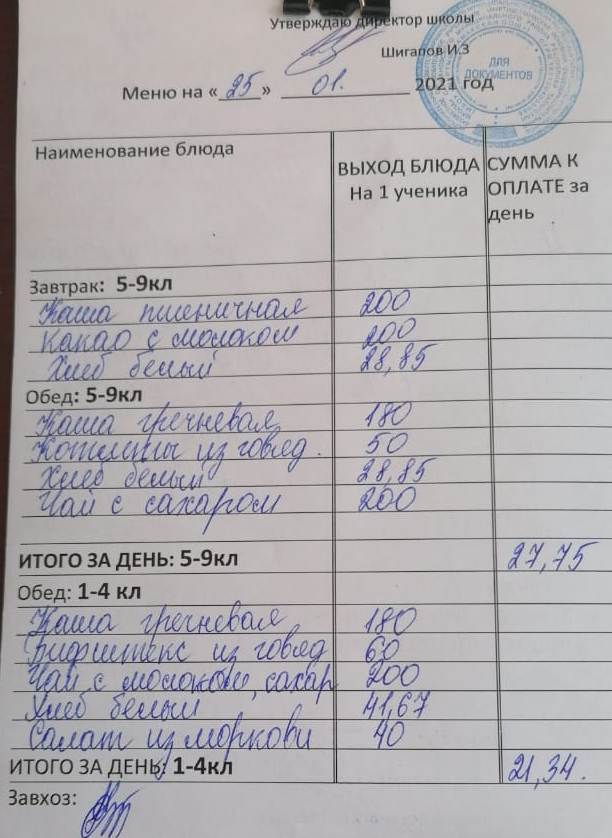 Утверждаю директор школы
Шигапов И.З
ДЛЯ ДОКУМЕНТОВ
Меню на «25» 01. 2021 год
Наименование блюда
ВЫХОД БЛЮДА На 1 ученика
СУММА К ОПЛАТЕ за день
Завтрак: 5-9кл
Каша пшеничная 200
какао с молоком 200
Хлеб белый 28,85
Обед: 5-9кл
Каша гречневая 180
Котлеты из говяд. 50
Хлеб белый 28,85
Чай с сахаром 200
ИТОГО ЗА ДЕНЬ: 5-9кл 27,75
Обед: 1-4 кл
Каша гречневая 180
Бифштекс из говяд 60
Чай с молоком, сахар 200
Хлеб белый 41,67
Салат из моркови 40
ИТОГО ЗА ДЕНЬ: 1-4кл 21,34.
Завхоз: